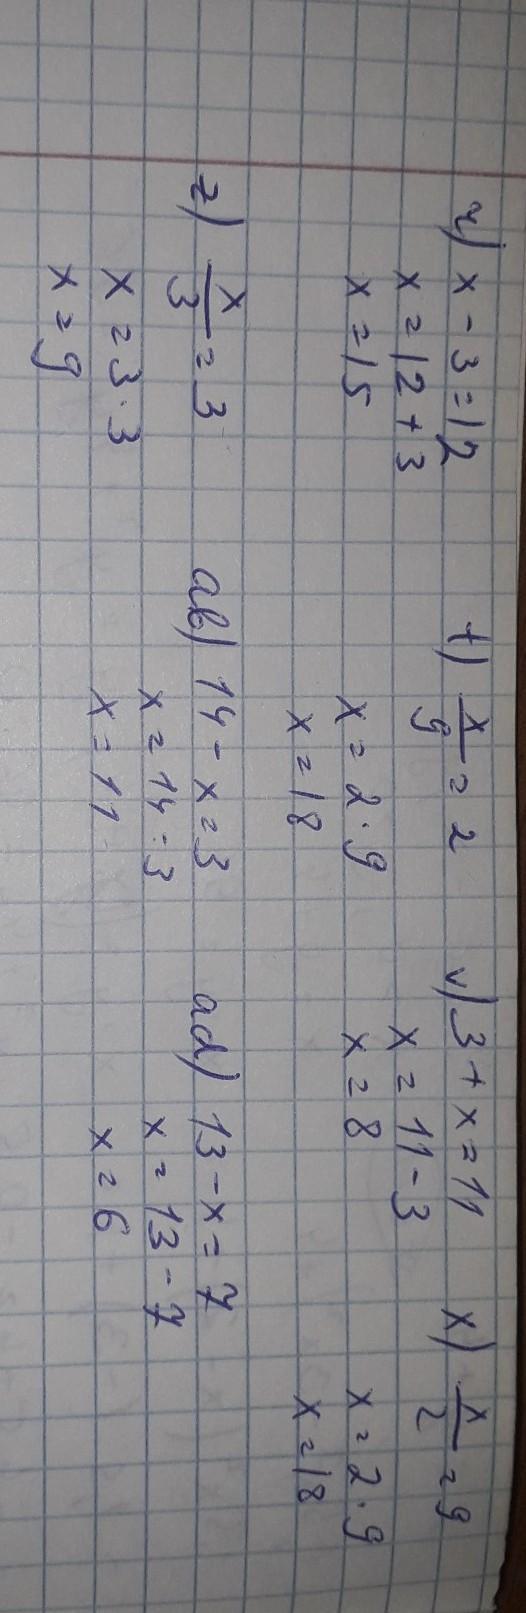 r) x - 3 = 12
x = 12 + 3
x = 15
t) x/9 = 2
x = 2 · 9
x = 18
v) 3 + x = 11
x = 11 - 3
x = 8
x) x/2 = 9
x = 2 · 9
x = 18
z) x/3 = 3
x = 3 · 3
x = 9
ab) 14 - x = 3
x = 14 - 3
x = 11
ad) 13 - x = 7
x = 13 - 7
x = 6